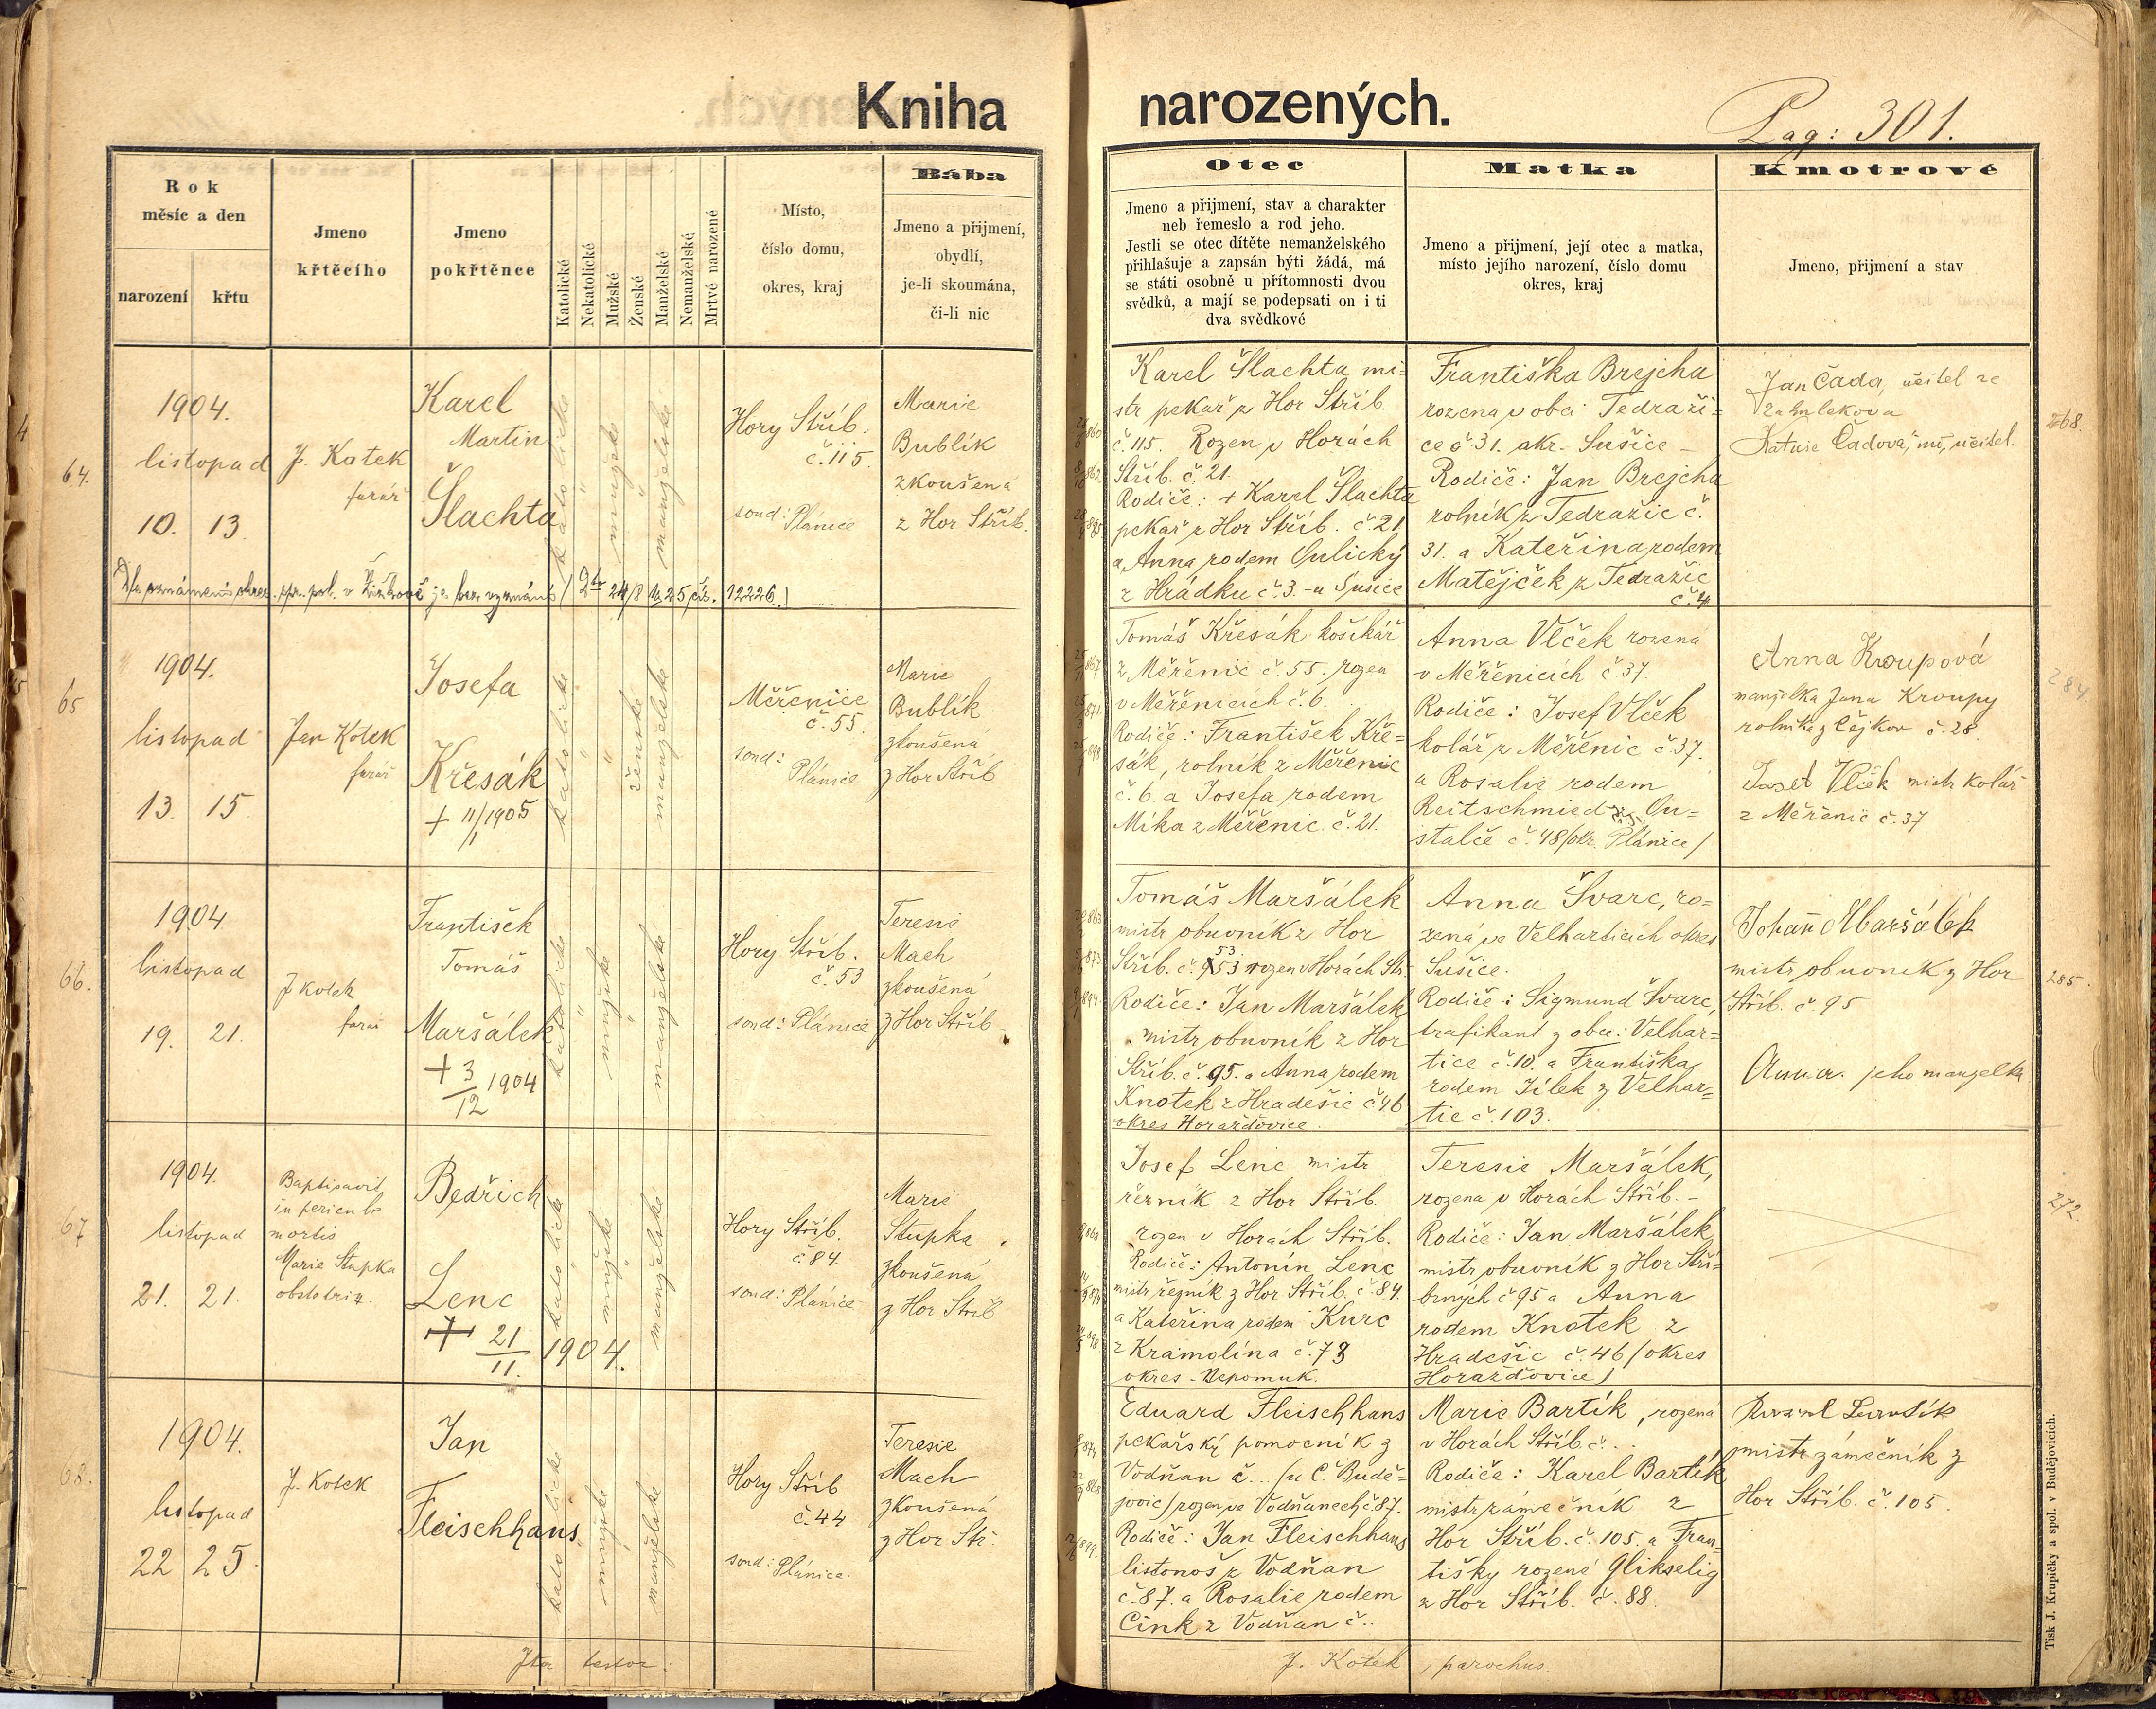 Kniha narozených.
Pag: 301.
Rok
měsíc a den
narození
křtu
Jmeno
křtěcího
Jmeno
pokřtěnce
Katolické
Nekatolické
Mužské
Ženské
Manželské
Nemanželské
Mrtvě narozené
Místo,
číslo domu,
okres, kraj
Bába
Jmeno a přijmení,
obydlí,
je-li skoumána,
či-li nic
Otec
Jmeno a přijmení, stav a charakter
neb řemeslo a rod jeho.
Jestli se otec dítěte nemanželského
přihlašuje a zapsán býti žádá, má
se státi osobně u přítomnosti dvou
svědků, a mají se podepsati on i ti
dva svědkové
Matka
Jmeno a přijmení, její otec a matka,
místo jejího narození, číslo domu
okres, kraj
Kmotrové
Jmeno, přijmení a stav
64.
1904.
listopad
10. 13.
J. Kotek
farář
Karel
Martin
Šlachta
katolické
mužské
manželské
Hory Stříb.
č. 115.
soud: Plánice
Marie
Bublík
zkoušená
z Hor Stříb.
Karel Šlachta mi=
str pekař z Hor Stříb.
č. 115. Rozen v Horách
Stříb. č. 21.
Rodiče: + Karel Šlachta
pekař z Hor Stříb. č. 21
a Anna rodem Gulický
z Hrádku č. 3. - u Sušice
Františka Brejcha
rozena v obci Tedraži=
ce č 31. okr. Sušice -
Rodiče: Jan Brejcha
rolník z Tedražic č.
31. a Kateřina rodem
Matějček z Tedražic
č. 4
Jan Čada, učitel ze
Zamlekova
Čadova, učitel.
268.
je bez vyznání / 24/8 1925 čís. 12226. /
65
1904.
listopad
13. 15.
Jan Kotek
farář
Josefa
Křesák
+ 11/1 1905
katolické
ženské
manželské
Měřenice
č. 55.
soud:
Plánice
Marie
Bublík
zkoušená
z Hor Stříb
Tomáš Křesák košíkář
z Měřenic č 55. rozen
v Měřenicích č. 6.
Rodiče: František Kře=
sák, rolník z Měřenic
č. 6. a Josefa rodem
Míka z Měřenic. č. 21.
Anna Vlček rozena
v Měřenicích č. 37.
Rodiče: Josef Vlček
kolář z Měřenic č. 37.
a Rosalie rodem
Reitschmied z Gu=
stalče č. 48 /okr. Plánice/
Anna Kroupová
manželka Jana Kroupy
rolníka z Čejkov č. 28.
Josef Vlček mistr kolář
z Měřenic č. 37
284
66.
1904
listopad
19. 21.
J Kotek
farář
František
Tomáš
Maršálek
+ 3/12 1904
katolické
mužské
manželské
Hory Stříb.
č. 53
soud: Plánice
Teresie
Mach
zkoušená
z Hor Stříb
Tomáš Maršálek
mistr obuvník z Hor
Stříb. č. 53 rozen v Horách Stř.
Rodiče: Jan Maršálek
mistr obuvník z Hor
Stříb. č. 95. a Anna rodem
Knotek z Hradešic č 46
okres Horažďovice.
Anna Švarc, ro=
zená ve Velharticích okres
Sušice.
Rodiče: Sigmund Švarc,
trafikant z obce: Velhar=
tice č. 10. a Františka
rodem Jílek z Velhar=
tic č. 103.
Johann Maršálek
mistr obuvník z Hor
Stříb. č. 95
Anna jeho manželka
285.
67
1904.
listopad
21. 21.
Baptisavit
mortis
Marie Stupka
obstetrix.
Bedřich
Lenc
+ 21/11. 1904.
katolické
mužské
manželské
Hory Stříb.
č. 84.
soud: Plánice
Marie
Stupka
zkoušená
z Hor Stříb
Josef Lenc mistr
řezník z Hor Stříb.
rozen v Horách Stříb.
Rodiče: Antonín Lenc
mistr řezník z Hor Stříb. č. 84.
a Kateřina rodem Kurc
z Kramolína č. 73
okres - Nepomuk.
Teresie Maršálek,
rozena v Horách Stříb. -
Rodiče: Jan Maršálek
mistr obuvník z Hor Stří=
brných č. 95 a Anna
rodem Knotek z
Hradešic č. 46 /okres
Horažďovice/
272.
68.
1904.
listopad
22 25.
J. Kotek
Jan
Fleischhans
katolické
mužské
manželské
Hory Stříb
č. 44
soud: Plánice.
Teresie
Mach
zkoušená
z Hor Stř.
Eduard Fleischhans
pekařský pomocník z
Vodňan č... /u Č. Budě=
jovic/ rozen ve Vodňanech č. 87.
Rodiče: Jan Fleischhans
listonoš z Vodňan
č. 87. a Rosalie rodem
Cink z Vodňan č..
Marie Bartík, rozena
v Horách Stříb. č...
Rodiče: Karel Bartík
mistr zámečník z
Hor Stříb. č. 105. a Fran=
tišky rozené Glikselig
z Hor Stříb. č. 88.
mistr zámečník z
Hor Stříb. č. 105.
Ita testor:
J. Kotek, parochus.
Tisk J. Krupičky a spol. v Budějovicích.